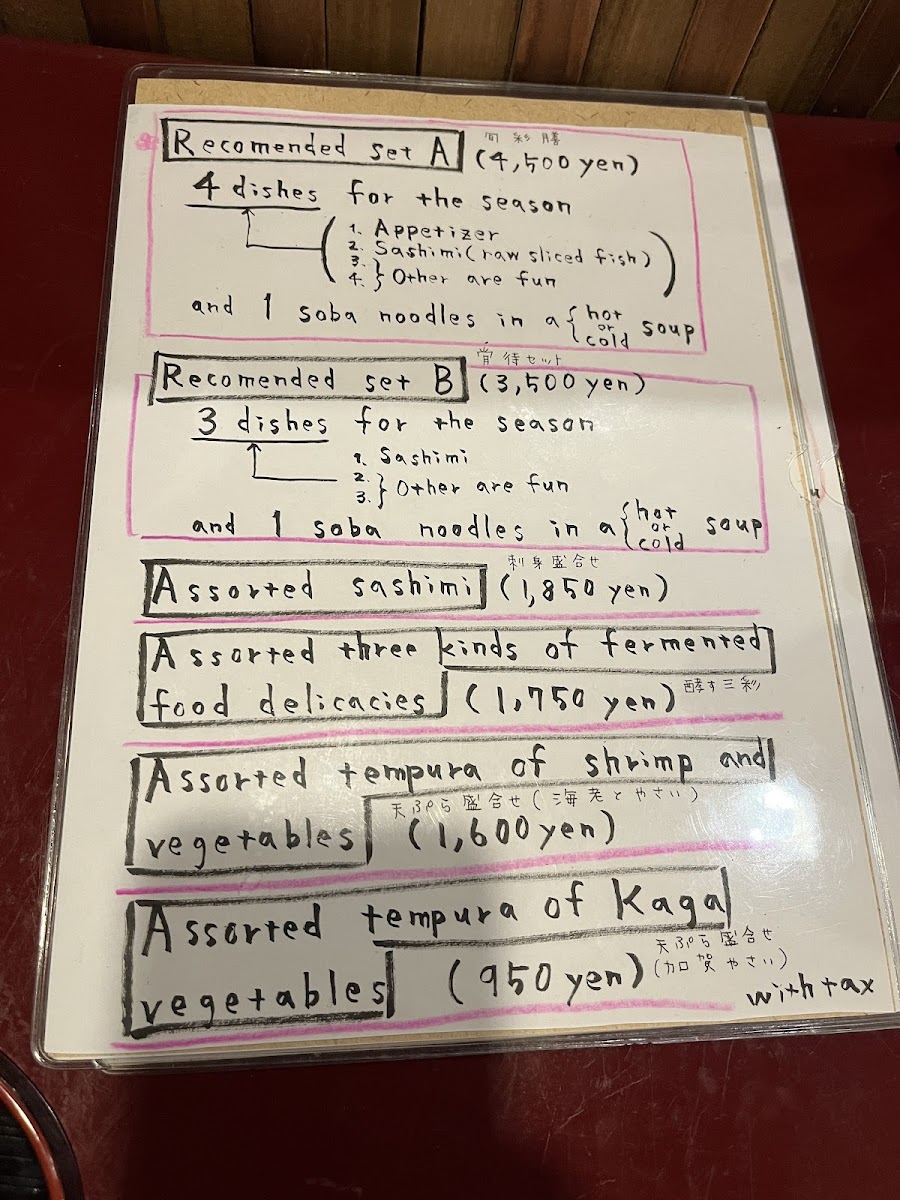 旬彩膳
Recomended set A (4,500 yen)
4 dishes for the season
1. Appetizer
2. Sashimi (raw sliced fish)
3.
4. } Other are fun
and 1 soba noodles in a { hot or cold soup
宵待セット
Recomended set B (3,500 yen)
3 dishes for the season
1. Sashimi
2.
3. } Other are fun
and 1 soba noodles in a { hot or cold soup
刺身盛合せ
Assorted sashimi (1,850 yen)
Assorted three kinds of fermented
food delicacies (1,750 yen) 酵す三彩
Assorted tempura of shrimp and
天ぷら盛合せ(海老とやさい)
vegetables (1,600 yen)
Assorted tempura of Kaga
天ぷら盛合せ
(加賀やさい)
vegetables (950 yen)
with tax